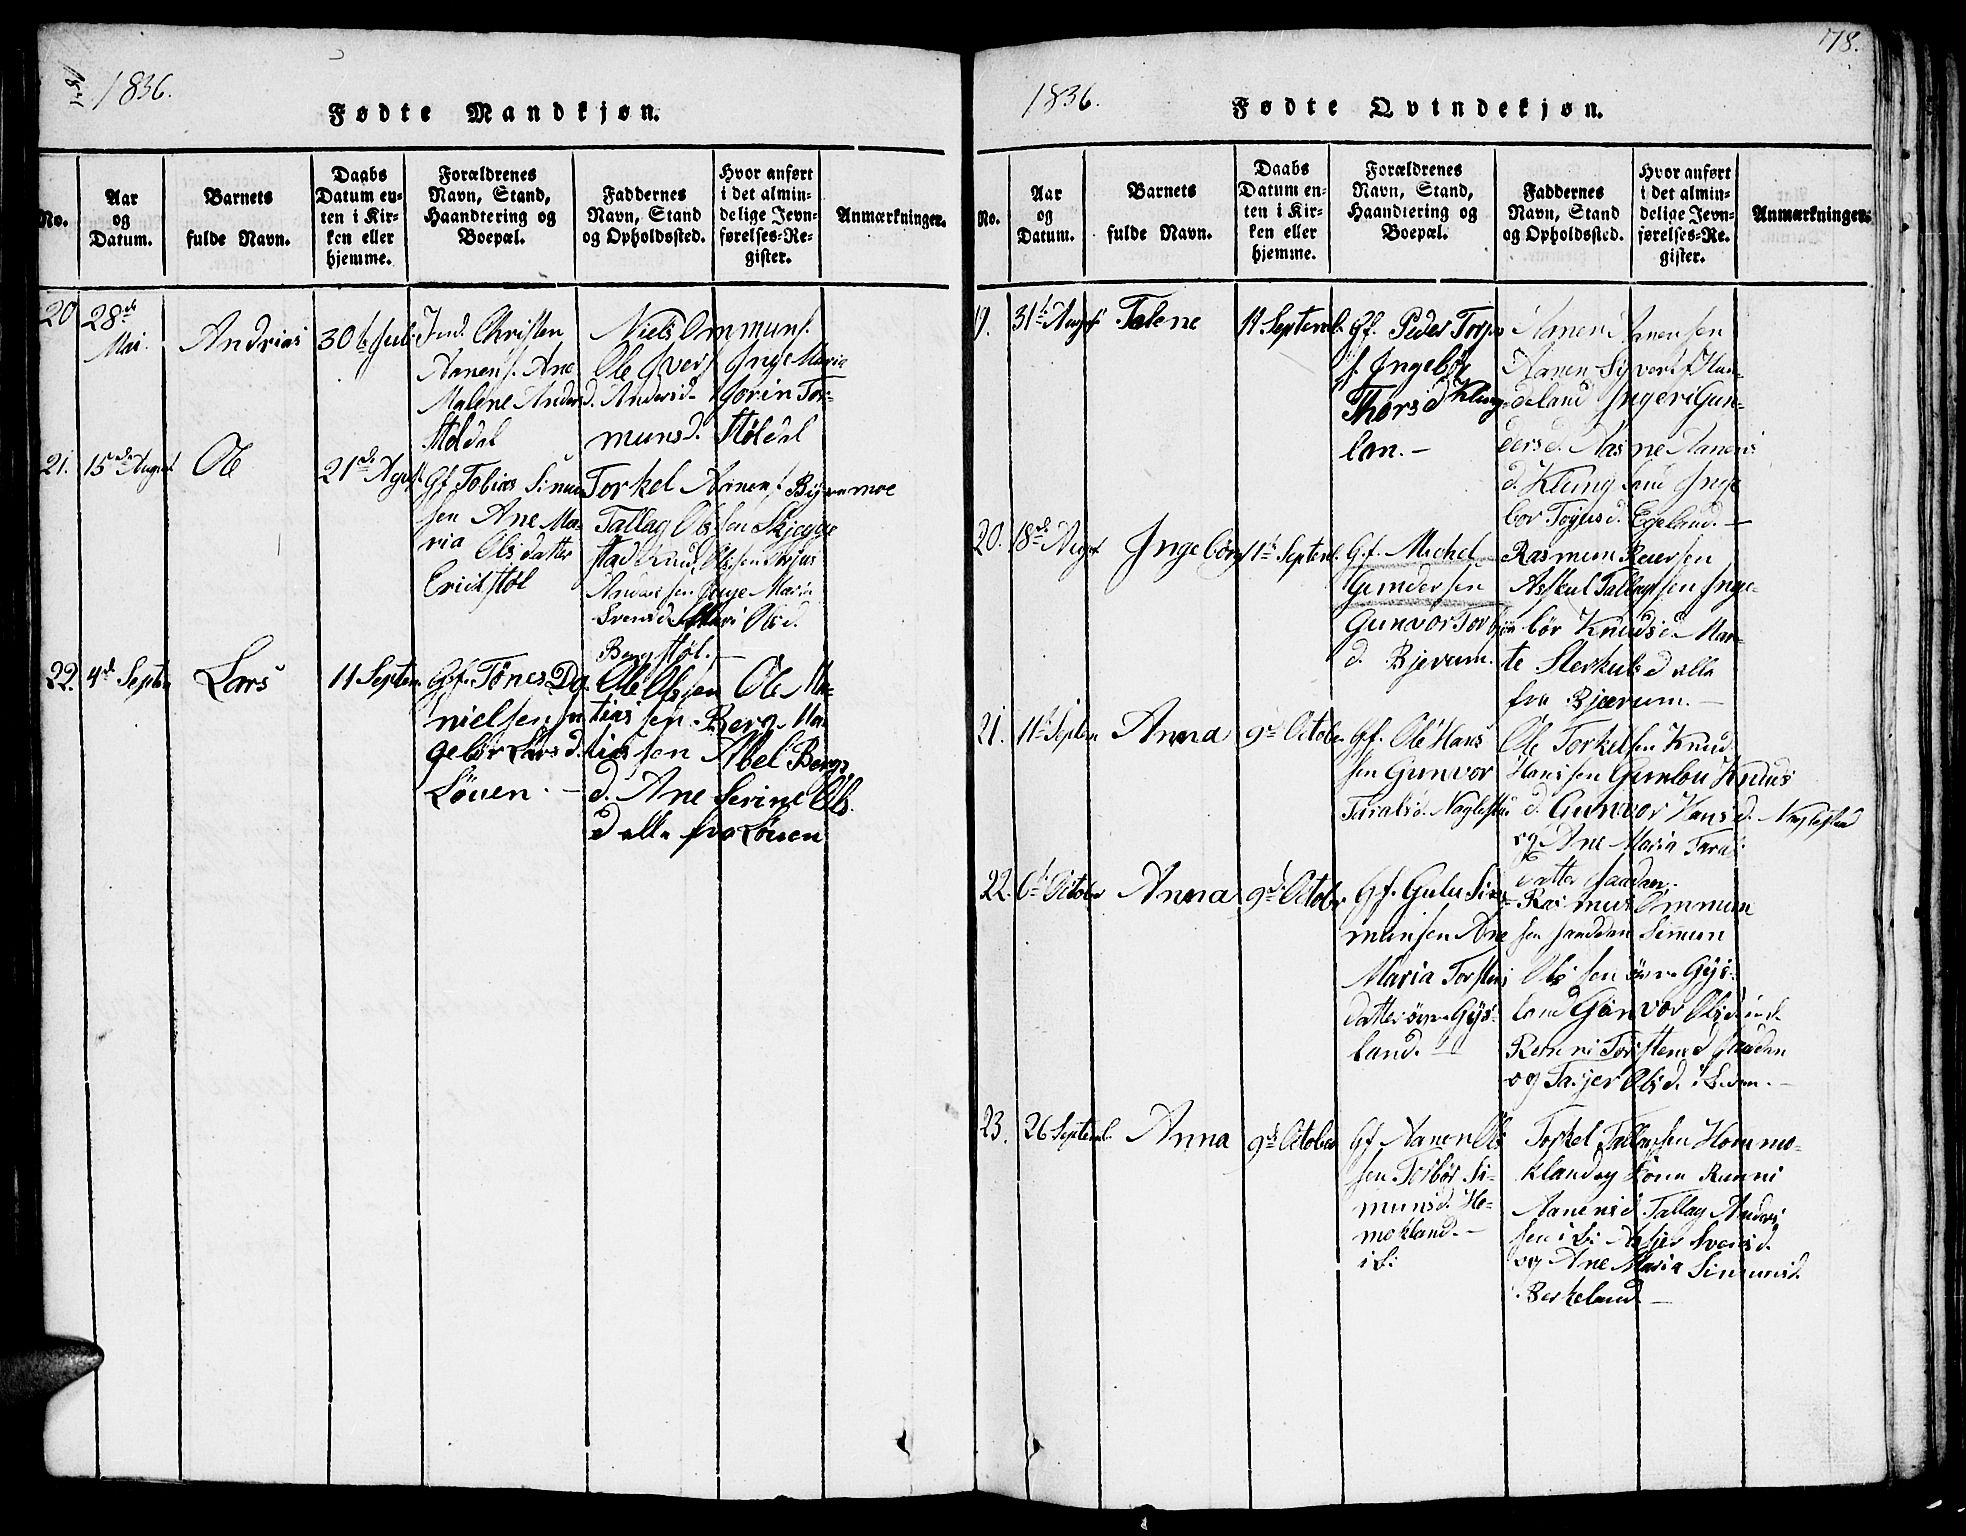 1836.
Fødte Mandkjøn.
No.
Aar
og
Datum.
Barnets
fulde Navn.
Daabs
Datum en-
ten i Kir-
ken eller
hjemme.
Forældrenes
Navn, Stand,
Haandtering og
Boepæl.
Faddernes
Navn, Stand
og Opholdssted.
Hvor anført
i det almin-
delige Jevn-
førelses-Re-
gister.
Anmærkninger.
20
28de
Mai.
Andrias
30te Juli
Ind. Christen
Aanens. Ane
Malene Anders
Støldal
Niels Ommuns.
Ole Ivers. Inge Maria
d. Andersd. Gorin Tor-
munsd. Støldal
21.
15de August
Ole
21de Agust
Gf. Tobias Simun
sen Ane Ma-
ria Olsdatter
Erickstøl
Torkel Aanens. Bygemoe
Tallag Olssen Skjegge
stad Knud Olssen
Anders sen Inge Maria
Svensd. Mari Olsd.
Bergstøl.
22.
4de Septem
Lars
11 Septem.
Gf. Tønes Da
nielsen In
gebør Larsd.
Løuen.
Ole Olssen Ole Ma-
tiassen Berg Ma
tiassen Abel Bergs
d. Ane Serine Ols
d alle fra Løuen
78.
1836.
Fødte Qvindekjøn.
No.
Aar
og
Datum.
Barnets
fulde Navn.
Daabs
Datum en-
ten i Kir-
ken eller
hjemme.
Forældrenes
Navn, Stand,
Haandtering og
Boepæl.
Faddernes
Navn, Stand
og Opholdssted.
Hvor anført
i det almin-
delige Jevn-
førelses-Re-
gister.
Anmærkninger.
19.
31te August
Talene
11 Septemb.
Gf. Peder Torjus
s. Ingebør
Thorsd Kling
lan.
Aanen Aanensen
Aanen Syverts. Hau-
deland Ingeri Gun-
dersd. Aasne Aanens
d. Kling land Inge
bor Tojusd. Egeland.
20.
18de August
Ingebørg
11te Septemb.
Gf. Michel
Gundersen
Gunvor Torbjøn
d. Bjerum.
Rasmun Reiersen
Asskul Tallagssen Inge-
bør Knudsd. Mar-
te Sterkulsd alle
fra Bjærum.
21.
11te Septem
Anna
9de October
Gf. Ole Hans
sen Gunvor
Taralsd. Naglestad
Ole Torkelsen Knud
Hanssen Gunlou Knuds
d. Gunvor Hansd. Naglestad
og Ane Maria Tarals
datter Haaden.
22.
6te October
Anna
9de October
Gf. Gulu Sim
munsen Ane
Maria Torstens
datter øvre Gys-
land.
Rasmus Ommun
sen Simun
Olssen øvre Gys-
land Gunvor Olsd. ind.
Renni Torstensd
og Tasjer Olsd. i
23.
26 Septemb.
Anna
9de October
Gf Aanen Ols
sen Torbør Si-
munsd. Ho-
mekland.
i S:
Torkel Tallagsen Homme-
kland og Kone Renni
Aanensd. Tallag Anders
sen i S: Asjer Svensd.
og Ane Maria Simunsd.
Berkeland